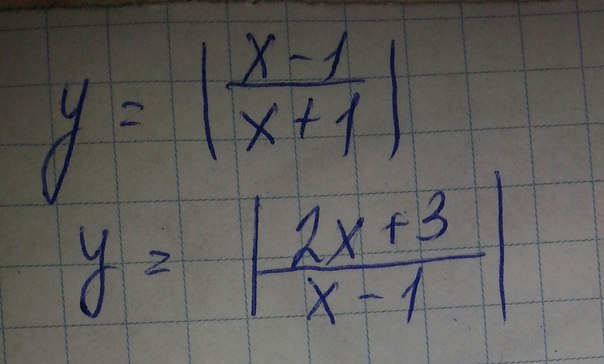 y = |(x-1)/(x+1)|
y = |(2x+3)/(x-1)|